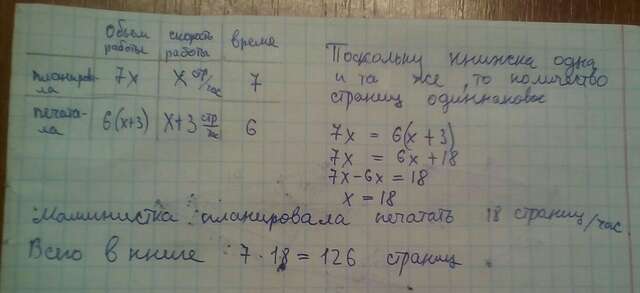 Объем работы скорость работы время
планировала 7x x стр/час 7
печатала 6(x+3) x+3 стр/час 6
Поскольку книжка одна
и та же, то количество
страниц одинаковое
7x = 6(x+3)
7x = 6x+18
7x-6x = 18
x = 18
Машинистка планировала печатать 18 страниц/час.
Всего в книге 7·18 = 126 страниц